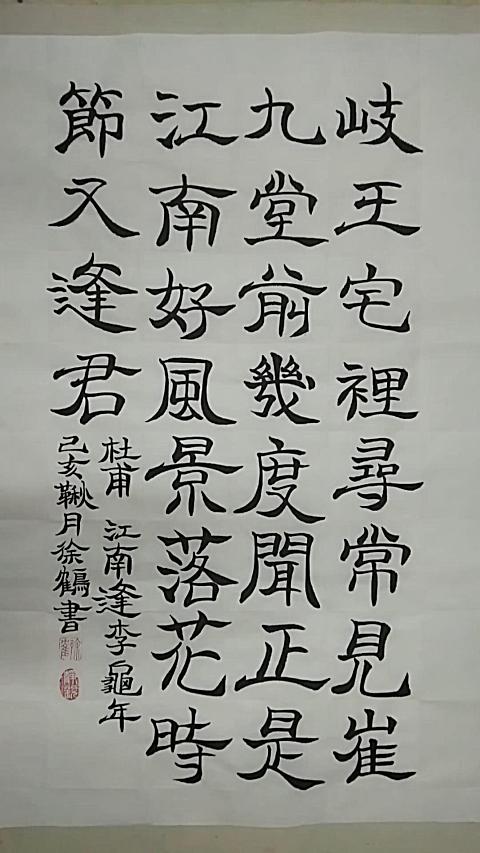 岐王宅裡尋常見崔
九堂前幾度聞正是
江南好風景落花時
節又逢君
杜甫 江南逢李龜年
己亥鞦月徐鶴書